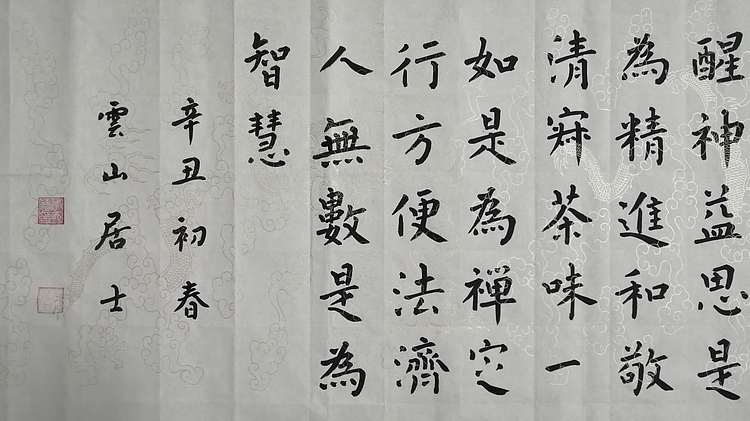 醒神益思是
為精進和敬
清寂茶味一
如是為禪定
行方便法濟
人無數是為
智慧
辛丑初春
雲山居士